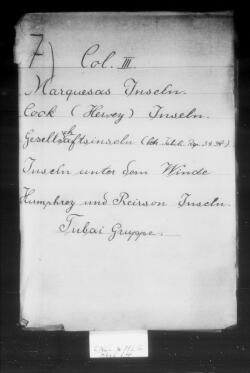 7) Col. III.
Marquesas Inseln.
Cook (Hervey) Inseln.
Gesellschaftsinseln
Inseln unter dem Winde
Humphrey und Reirson Inseln.
Tubai Gruppe.